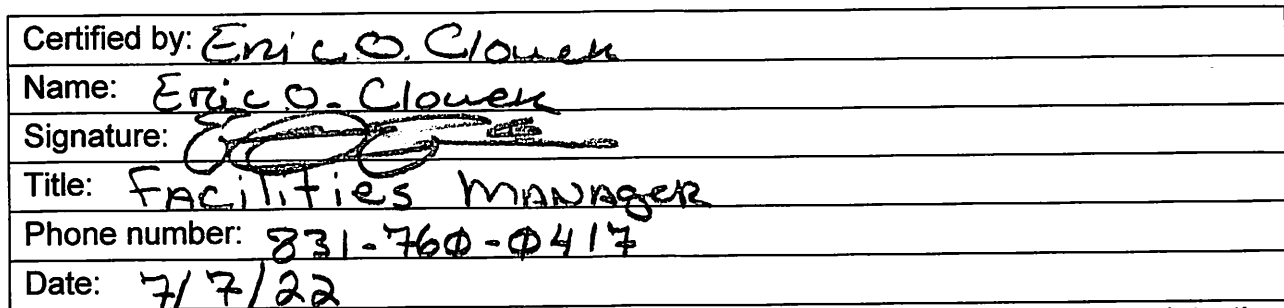 Certified by: Eric O. Clower
Name: Eric O. Clower
Signature:
Title: FACilities MANAgeR
Phone number: 831-760-0417
Date: 7/7/22